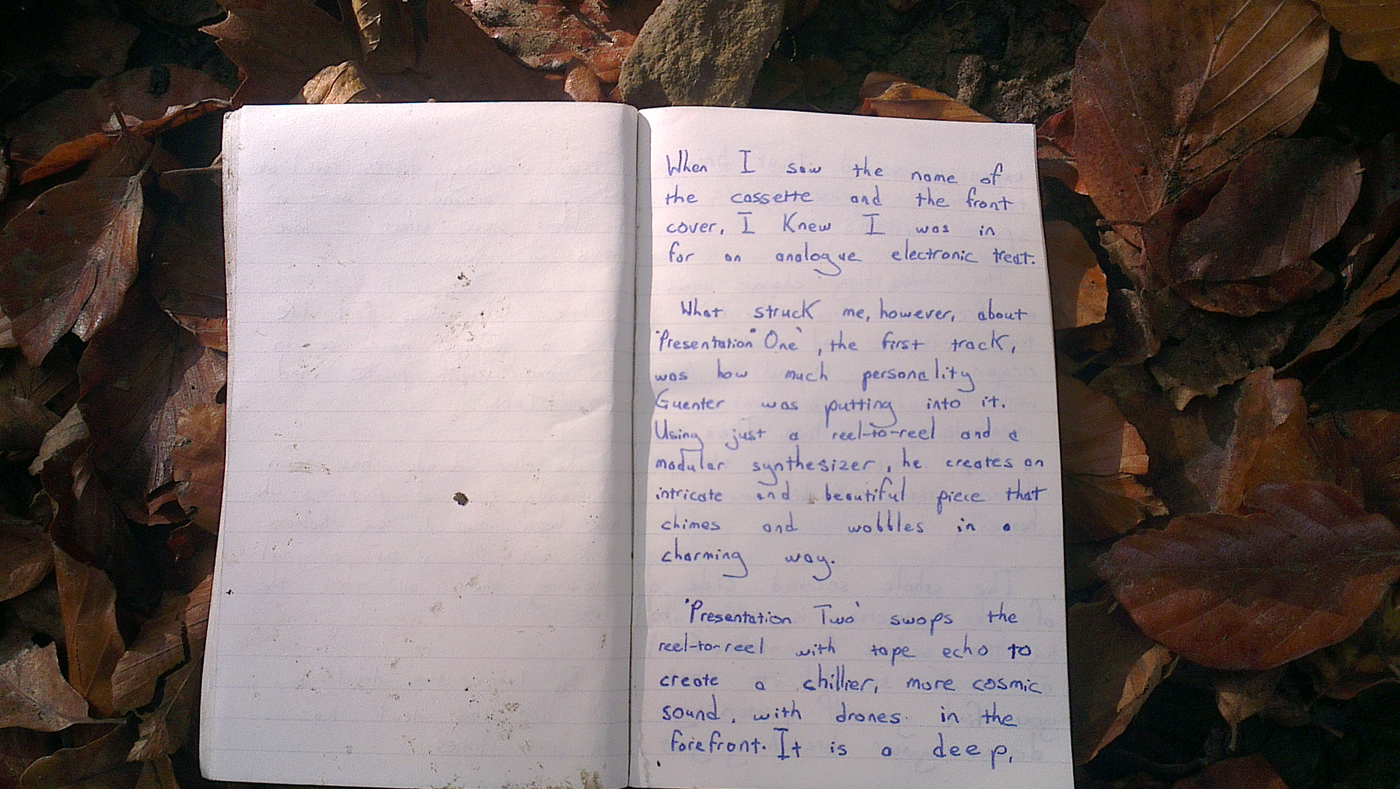 When I saw the name of
the cassette and the front
cover, I Knew I was in
for an analogue electronic treat.
What struck me, however, about
'Presentation One', the first track,
was how much personality
Guenter was putting into it.
Using just a reel-to-reel and a
modular synthesizer, he creates an
intricate and beautiful piece that
chimes and wobbles in a
charming way.
'Presentation Two' swaps the
reel-to-reel with tape echo to
create a chillier, more cosmic
sound, with drones in the
forefront. It is a deep,